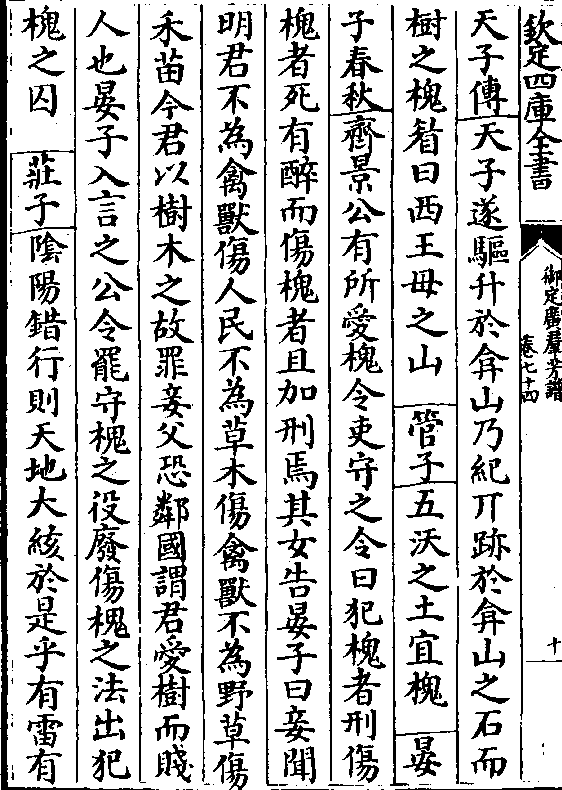 欽定四庫全書
御定廣羣芳譜
卷七十四
十
天子傳天子遂驅升於弇山乃紀丌跡於弇山之石而
樹之槐眉曰西王母之山 管子五沃之土宜槐 晏
子春秋齊景公有所愛槐令吏守之令曰犯槐者刑傷
槐者死有醉而傷槐者且加刑焉其女告晏子曰妾聞
明君不為禽獸傷人民不為草木傷禽獸不為野草傷
禾苗今君以樹木之故罪妾父恐鄰國謂君愛樹而賤
人也晏子入言之公令罷守槐之役廢傷槐之法出犯
槐之囚 莊子陰陽錯行則天地大絯於是乎有雷有